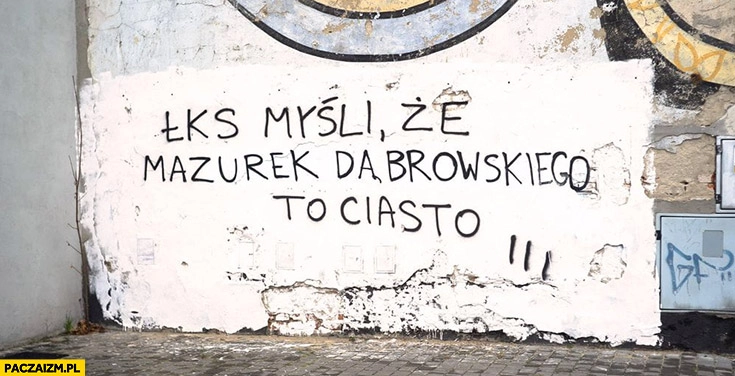 ŁKS MYŚLI, ŻE
MAZUREK DĄBROWSKIEGO
TO CIASTO
!!!
PACZAIZM.PL